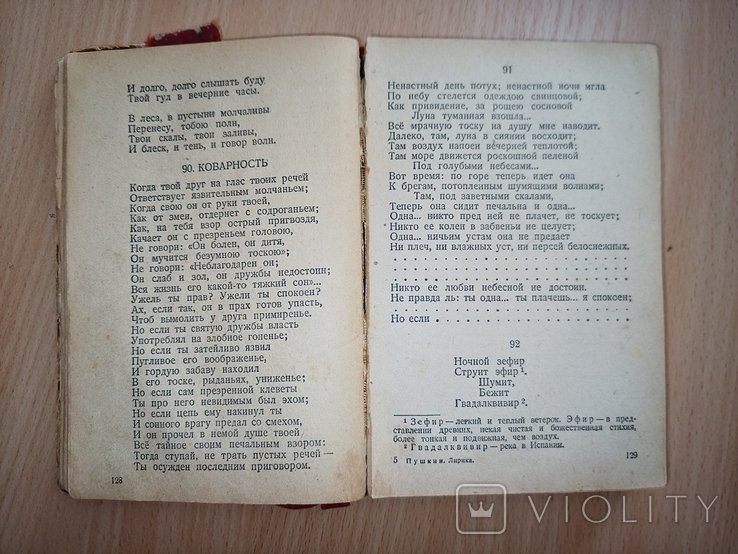 И долго, долго слышать буду
Твой гул в вечерние часы.
В леса, в пустыни молчаливы
Перенесу, тобою полн,
Твои скалы, твои заливы,
И блеск, и тень, и говор волн.
90. КОВАРНОСТЬ
Когда твой друг на глас твоих речей
Ответствует язвительным молчаньем;
Когда свою он от руки твоей,
Как от змеи, отдернет с содроганьем;
Как, на тебя взор острый пригвоздя,
Качает он с презреньем головою,
Не говори: «Он болен, он дитя,
Он мучится безумною тоскою»;
Не говори: «Неблагодарен он;
Он слаб и зол, он дружбы недостоин;
Вся жизнь его какой-то тяжкий сон»...
Ужель ты прав? Ужели ты спокоен?
Ах, если так, он в прах готов упасть,
Чтоб вымолить у друга примиренье.
Но если ты святую дружбы власть
Употреблял на злобное гоненье;
Но если ты затейливо язвил
Пугливое его воображенье,
И гордую забаву находил
В его тоске, рыданьях, униженье;
Но если сам презренной клеветы
Ты про него невидимым был эхом;
Но если цепь ему накинул ты
И сонного врагу предал со смехом,
И он прочел в немой душе твоей
Всё тайное своим печальным взором:
Тогда ступай, не трать пустых речей —
Ты осужден последним приговором.
128
91
Ненастный день потух; ненастной ночи мгла
По небу стелется одеждою свинцовой;
Как привидение, за рощею сосновой
Луна туманная взошла...
Всё мрачную тоску на душу мне наводит.
Далеко, там, луна в сиянии восходит;
Там воздух напоен вечерней теплотой;
Там море движется роскошной пеленой
Под голубыми небесами...
Вот время: по горе теперь идет она
К брегам, потопленным шумящими волнами;
Там, под заветными скалами,
Теперь она сидит печальна и одна...
Одна... никто пред ней не плачет, не тоскует;
Никто ее колен в забвеньи не целует;
Одна... ничьим устам она не предает
Ни плеч, ни влажных уст, ни персей белоснежных.
. . . . . . . . . . . . . . . . . . . . .
. . . . . . . . . . . . . . . . . . . . .
. . . . . . . . . . . . . . . . . . . . .
Никто ее любви небесной не достоин.
Не правда ль: ты одна... ты плачешь... я спокоен;
. . . . . . . . . . . . . . . . . . . . .
Но если . . . . . . . . . . . . . . . . .
92
Ночной зефир
Струит эфир¹.
Шумит,
Бежит
Гвадалквивир².
¹ Зефир — легкий и теплый ветерок. Эфир — в пред-
ставлении древних, некая чистая и божественная стихия,
более тонкая и подвижная, чем воздух.
² Гвадалквивир — река в Испании.
5 Пушкин. Лирика.
129
VIOLITY